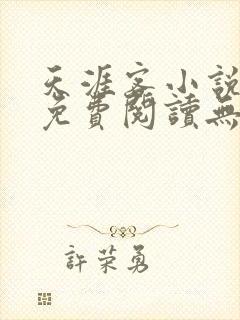 天涯客小說
免費閱讀無
許荣勇